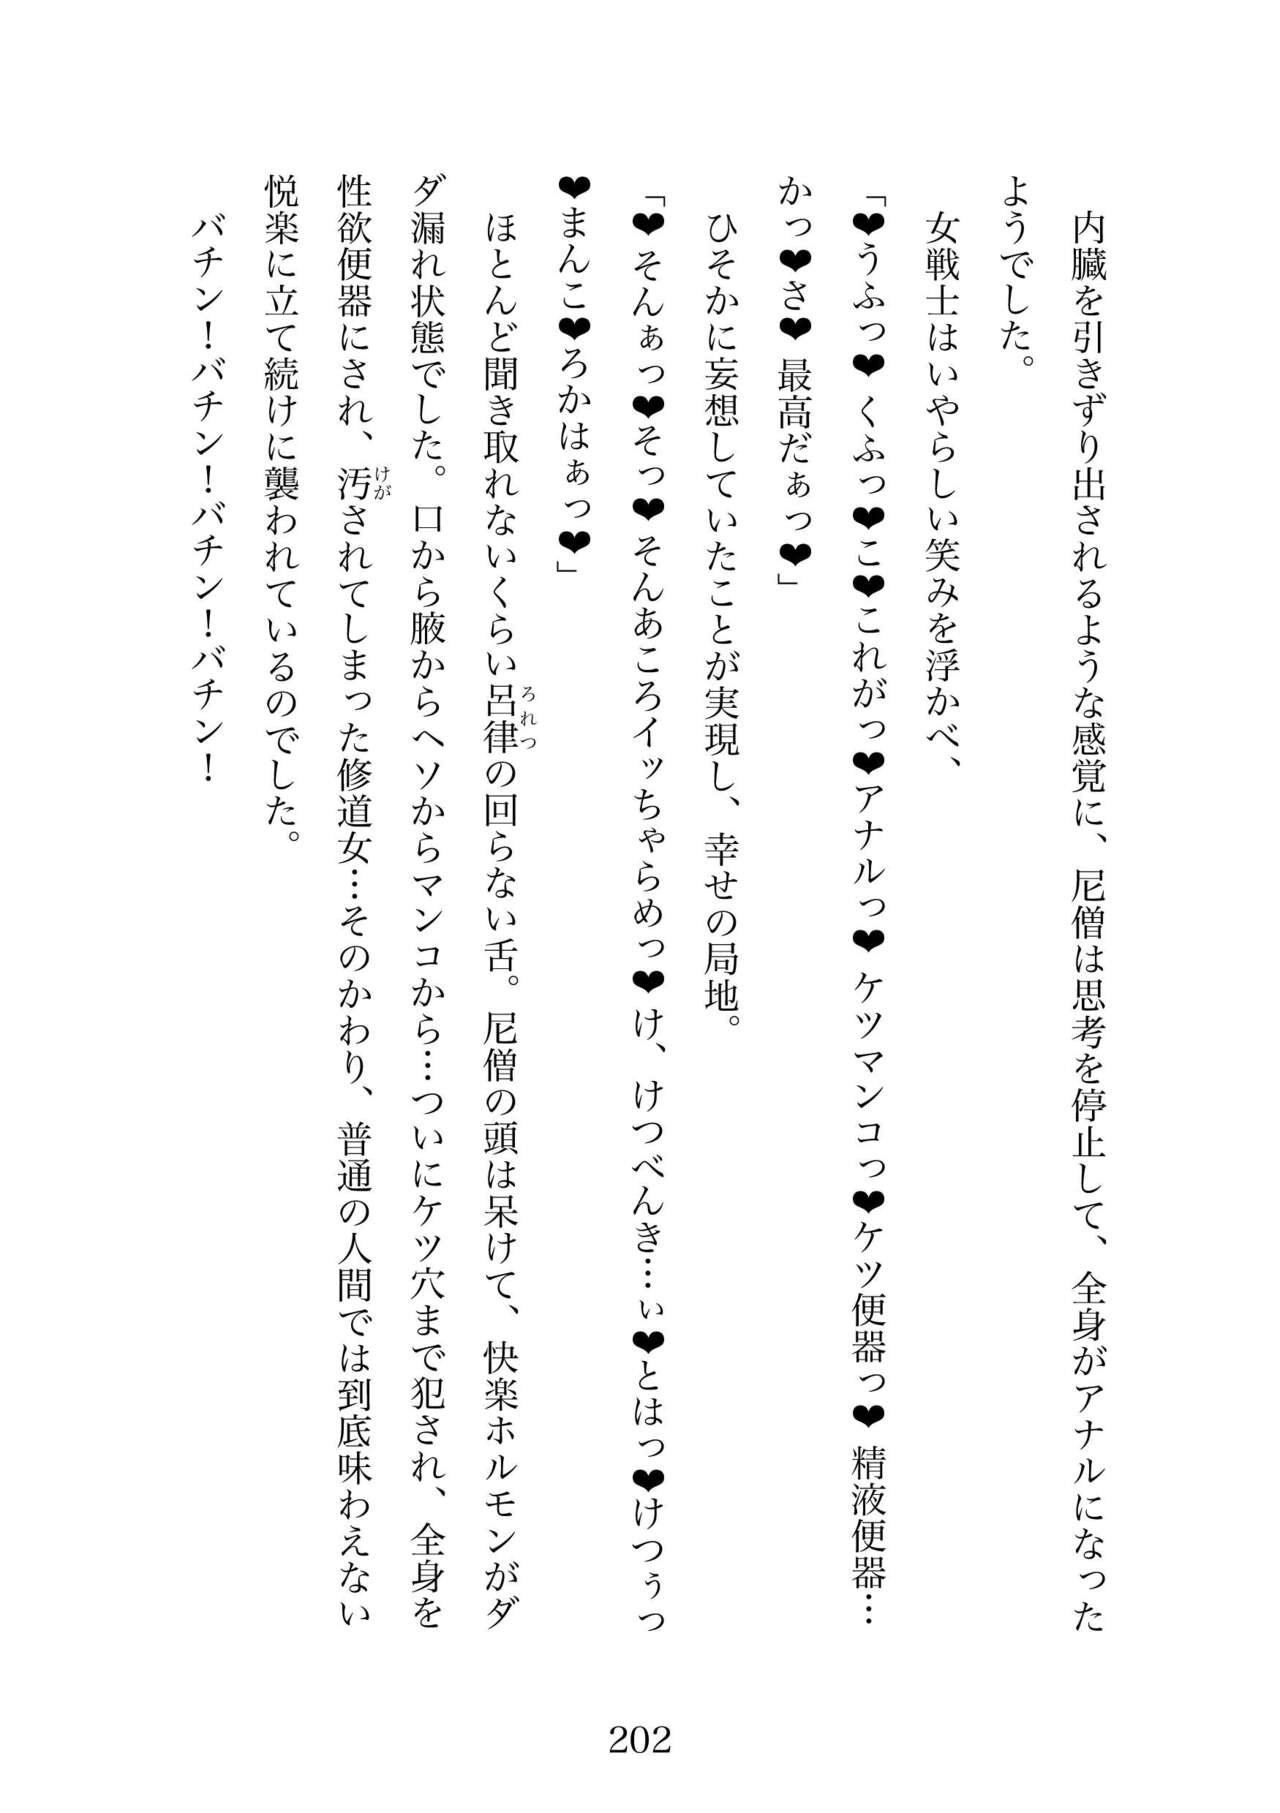 内臓を引きずり出されるような感覚に、尼僧は思考を停止して、全身がアナルになった
ようでした。
女戦士はいやらしい笑みを浮かべ、
「❤うふっ❤くふっ❤こ❤これがっ❤アナルっ❤ケツマンコっ❤ケツ便器っ❤精液便器…
かっ❤さ❤最高だぁっ❤」
ひそかに妄想していたことが実現し、幸せの局地。
「❤そんぁっ❤そっ❤そんあころイッちゃらめっ❤け、けつべんき…ぃ❤とはっ❤けつぅっ
❤まんこ❤ろかはぁっ❤」
ほとんど聞き取れないくらい呂律の回らない舌。尼僧の頭は呆けて、快楽ホルモンがダ
ダ漏れ状態でした。口から腋からヘソからマンコから…ついにケツ穴まで犯され、全身を
性欲便器にされ、汚されてしまった修道女…そのかわり、普通の人間では到底味わえない
悦楽に立て続けに襲われているのでした。
バチン！バチン！バチン！バチン！
202